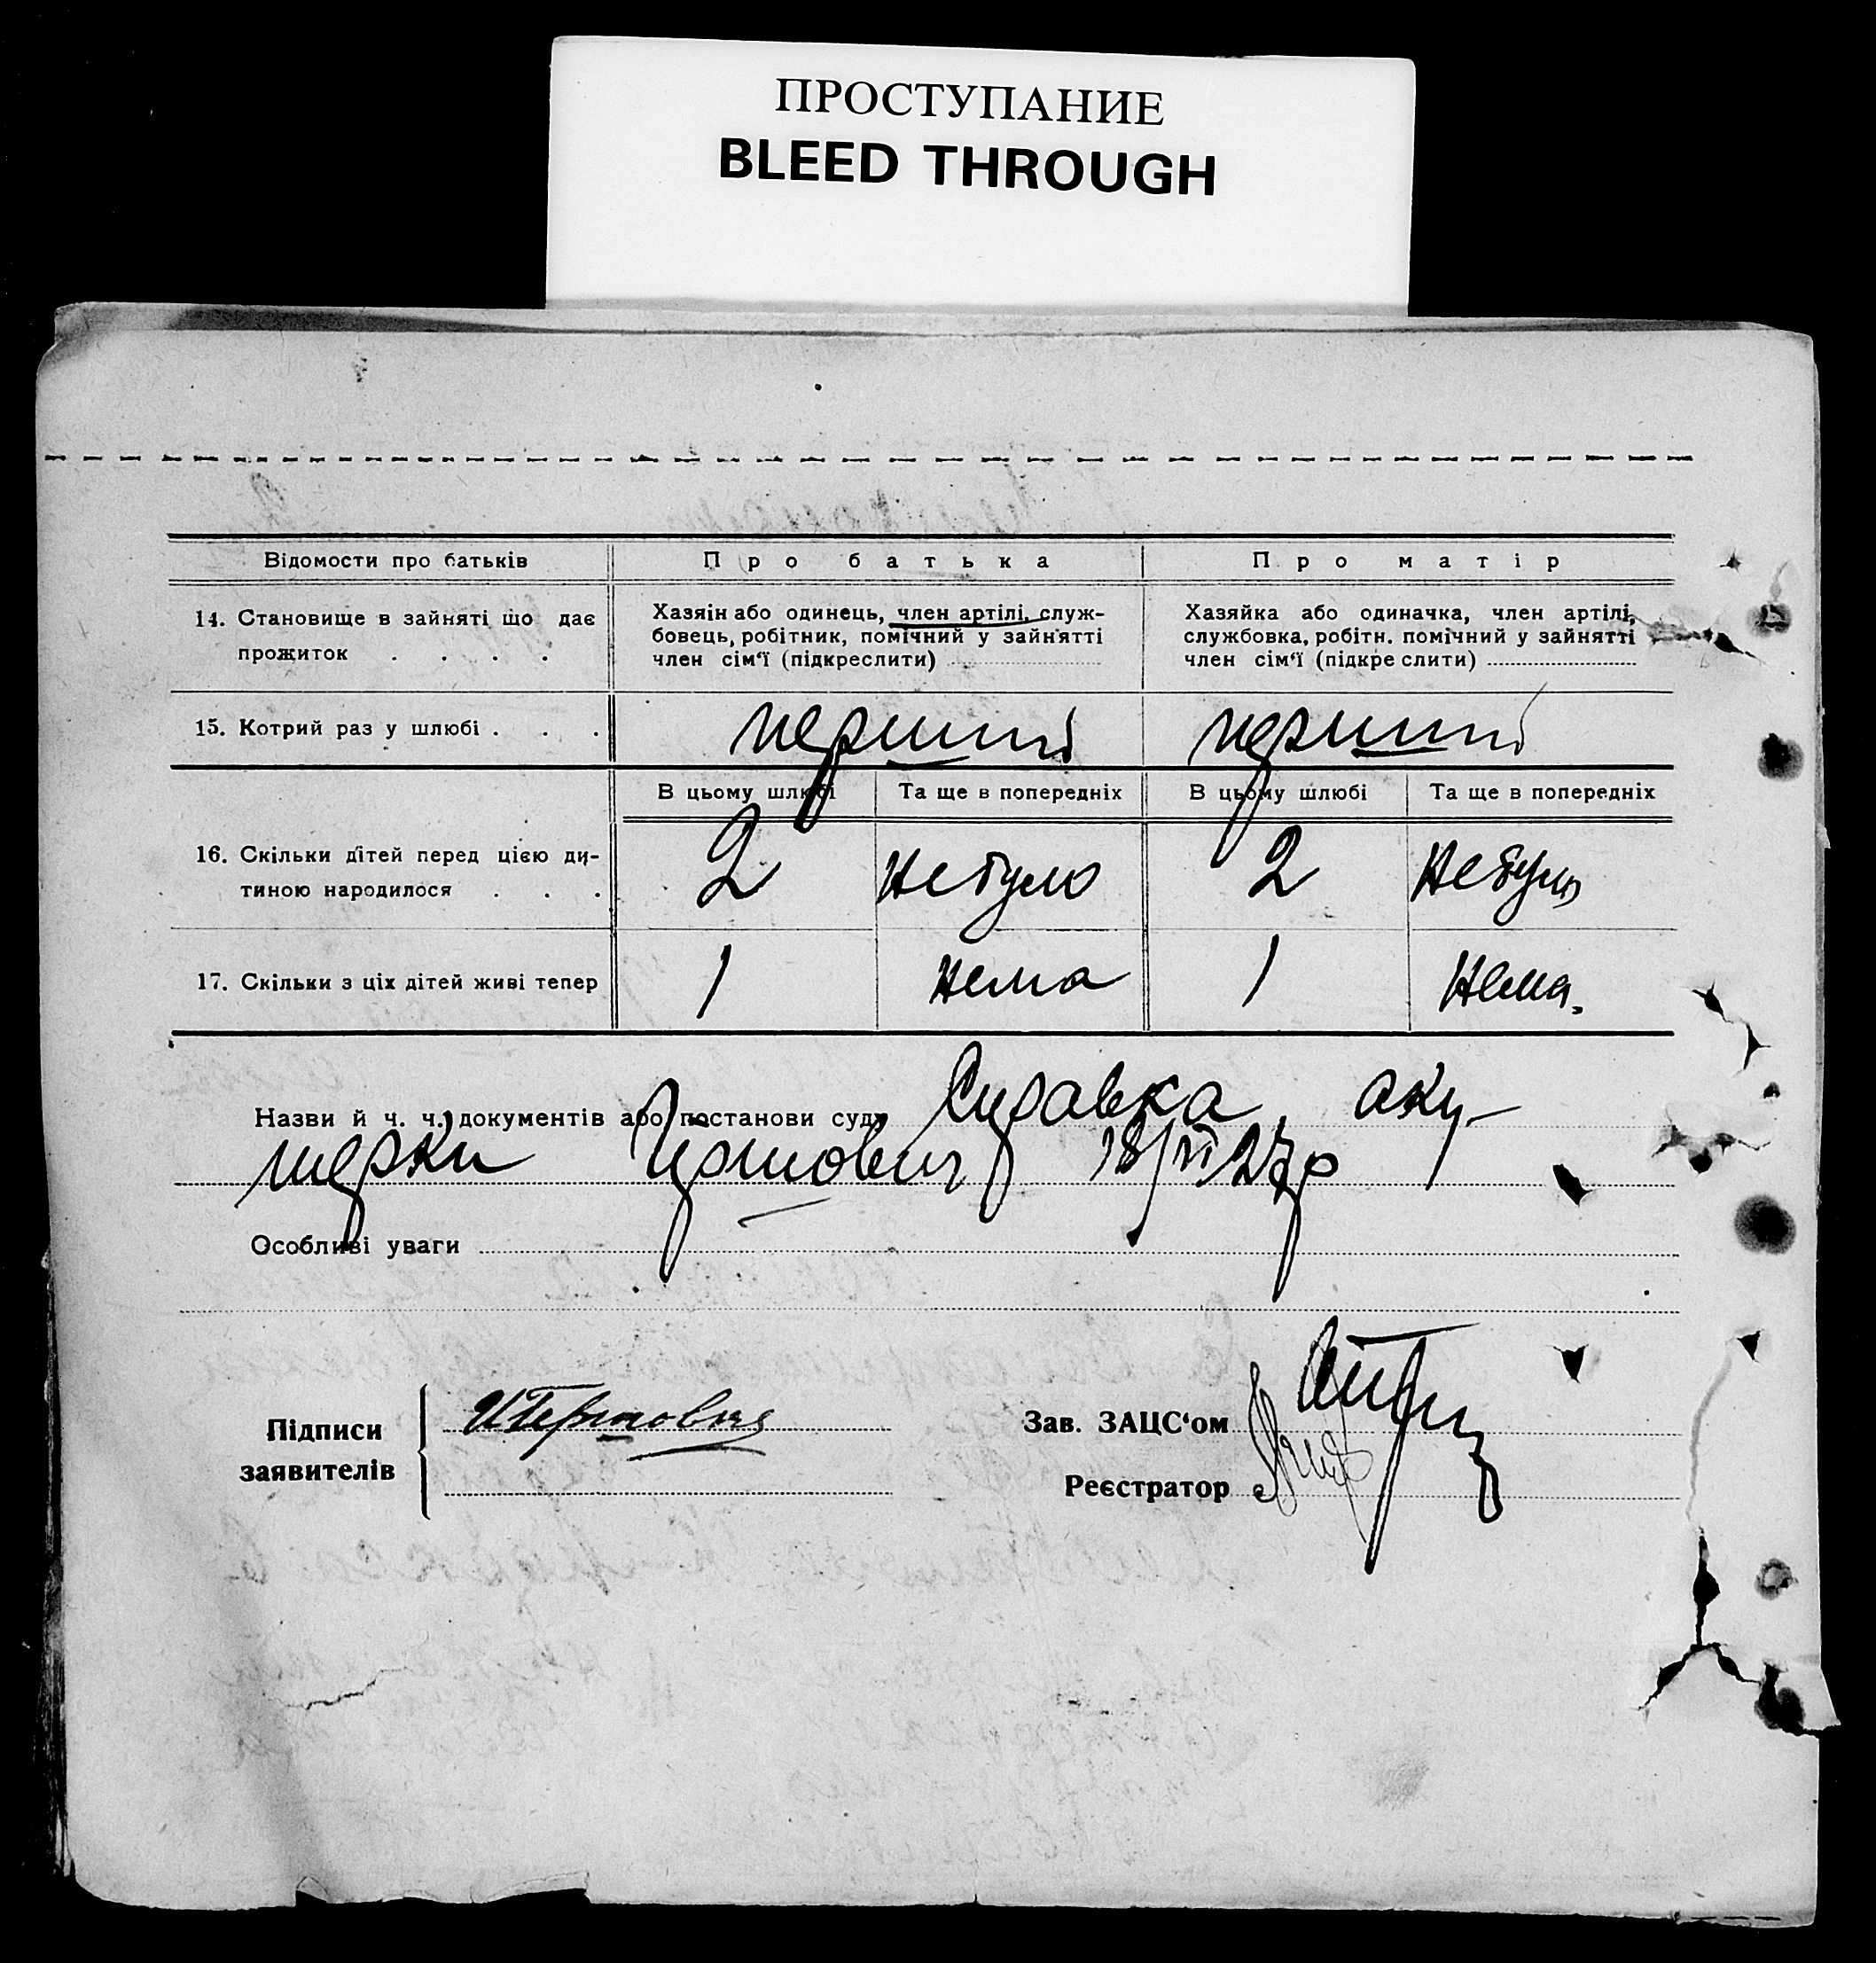 ПРОСТУПАНИЕ
BLEED THROUGH
Відомости про батьків
Про батька
Про матір
14. Становище в зайняті що дає
прожиток . . . .
Хазяїн або одинець, член артілі, служ-
бовець, робітник, помічний у зайнятті
член сім'ї (підкреслити)
Хазяйка або одиначка, член артілі,
службовка, робітн. помічний у зайнятті
член сім'ї (підкре слити)
15. Котрий раз у шлюбі . . .
перший
перший
В цьому шлюбі
Та ще в попередніх
В цьому шлюбі
Та ще в попередніх
16. Скільки дітей перед цією ди-
тиною народилося . . .
2
не було
2
не було
17. Скільки з ціх дітей живі тепер
1
нема
1
нема.
Назви й ч. ч. документів або постанови суду Справка аку-
шерки 18/VI 27 р
Особливі уваги
Підписи
заявителів
Зав. ЗАЦС'ом
Реєстратор